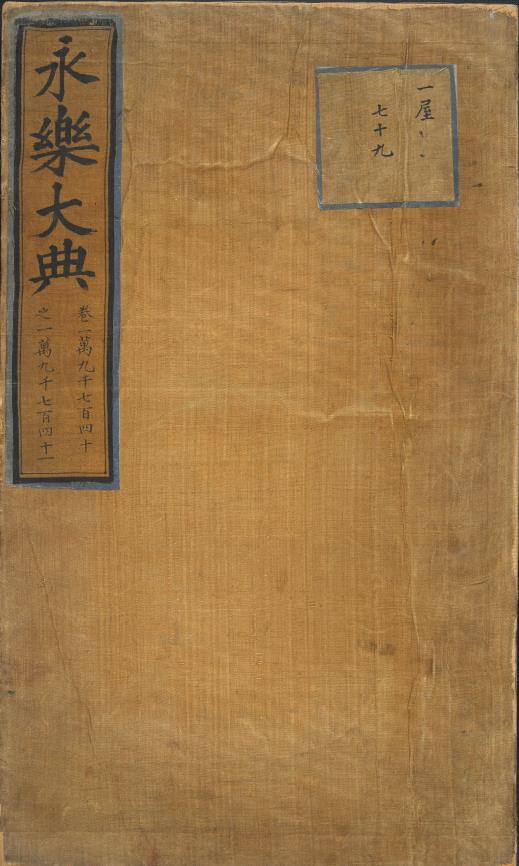 永樂大典
卷一萬九千七百四十
之一萬九千七百四十一
一屋
七十九